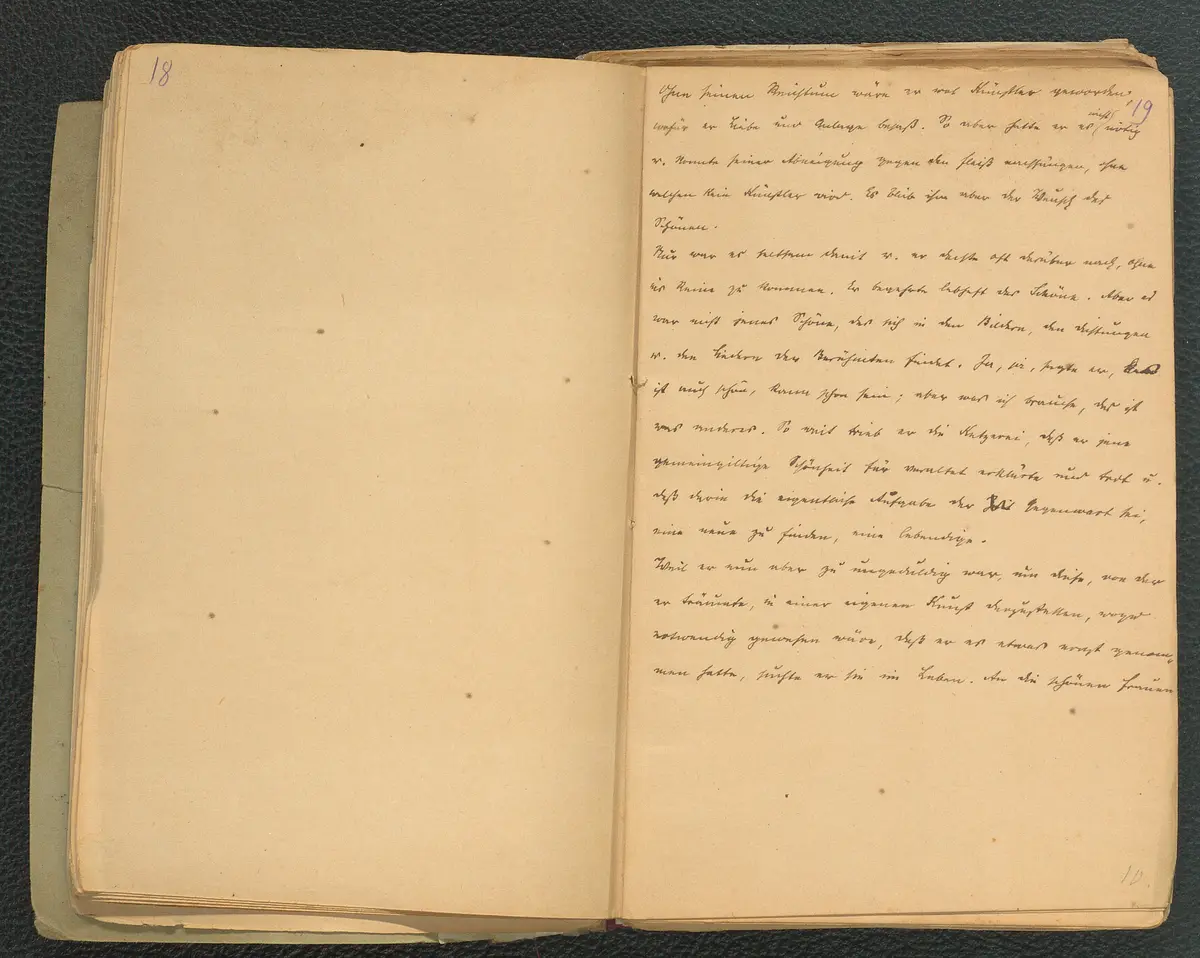 18
19
Ohne seinen Reichtum wäre er was Künstler geworden,
wofür er Liebe und Anlage besaß. So aber hatte er es nicht nötig
u. konnte seiner Abneigung gegen den Fleiß nachhängen, ohne
welchen kein Künstler wird. Es blieb ihm aber der Wunsch des
Schönen.
Nur war es seltsam damit u. er dachte oft darüber nach, ohne
ins Reine zu kommen. Er begehrte lebhaft das Schöne. Aber es
war nicht jenes Schöne, das sich in den Bildern, den Dichtungen
u. den Liedern der Berühmten findet. Ja, ja, sagte er, das
ist auch schön, kann schon sein; aber was ich brauche, das ist
was anderes. So weit trieb er die Ketzerei, daß er jene
gemeingiltige Schönheit für veraltet erklärte und tot u.
daß darin die eigentliche Aufgabe der Gegenwart sei,
eine neue zu finden, eine lebendige.
Weil er nun aber zu ungeduldig war, um diese, von der
er träumte, in einer eigenen Kunst darzustellen, wozu
notwendig gewesen wäre, daß er es etwas ernst genom-
men hätte, suchte er sie im Leben. An die schönen Frauen
10.